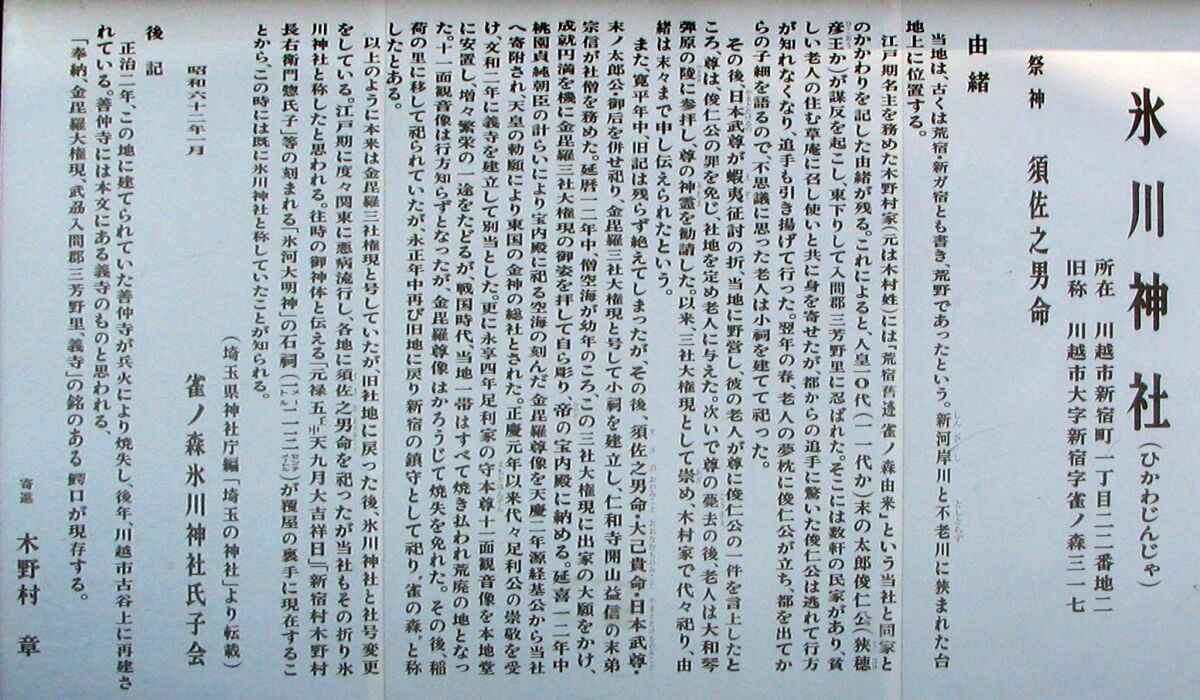 氷川神社(ひかわじんじゃ)
所在 川越市新宿町一丁目二二番地二
旧称 川越市大字新宿字雀ノ森三一七
祭神 須佐之男命
由緒
当地は、古くは荒宿・新ガ宿とも書き、荒野であったという。新河岸川と不老川に狭まれた台
地上に位置する。
江戸期名主を務めた木野村家(元は木村姓)には「荒宿舊迹雀ノ森由来」という当社と同家と
のかかわりを記した由緒が残る。これによると、人皇一〇代(一一代か)末の太郎俊仁公(狭穂
彦王か)が謀反を起こし、東下りして入間郡三芳野里に忍ばれた。そこには数軒の民家があり、貧
しい老人の住む草庵に召し使いと共に身を寄せたが、都からの追手に驚いた俊仁公は逃れて行方
が知れなくなり、追手も引き揚げて行った。翌年の春、老人の夢枕に俊仁公が立ち、都を出てか
らの子細を語るので、不思議に思った老人は小祠を建てて祀った。
その後日本武尊が蝦夷征討の折、当地に野営し、彼の老人が尊に俊仁公の一件を言上したと
ころ、尊は、俊仁公の罪を免じ、社地を定め老人に与えた。次いで尊の薨去の後、老人は大和琴
弾原の陵に参拝し、尊の神霊を勧請した。以来、三社大権現として崇め、木村家で代々祀り、由
緒は末々まで申し伝えられたという。
また、寛平年中旧記は残らず絶えてしまったが、その後、須佐之男命・大己貴命・日本武尊・
末ノ太郎公・御后を併せ祀り、金毘羅三社大権現と号して小祠を建立し、仁和寺開山益信の末弟
宗信が社僧を務めた。延暦一二年中、僧空海が幼年のころ、この三社大権現に出家の大願をかけ、
成就円満を機に金毘羅三社大権現の御姿を拝して自ら彫り、帝の宝内殿に納める。延喜一二年中
桃園貞純朝臣の計らいにより宝内殿に祀る空海の刻んだ金毘羅尊像を天慶二年源経基公から当社
へ寄附され、天皇の勅願により東国の金神の総社とされた。正慶元年以来代々足利公の崇敬を受
け、文和二年に義寺を建立して別当とした。更に永享四年足利家の守本尊十一面観音像を本地堂
に安置し、増々繁栄の一途をたどるが、戦国時代、当地一帯はすべて焼き払われ荒廃の地となっ
た。十一面観音像は行方知らずとなったが、金毘羅尊像はかろうじて焼失を免れた。その後、稲
荷の里に移して祀られていたが、永正年中再び旧地に戻り新宿の鎮守として祀り、“雀の森”と称
したとある。
以上のように本来は金毘羅三社権現と号していたが、旧社地に戻った後、氷川神社と社号変更
をしている。江戸期に度々関東に悪病流行し、各地に須佐之男命を祀ったが当社もその折り氷
川神社と称したと思われる。往時の御神体と伝える「元禄五壬申天九月大吉祥日」「新宿村木野村
長右衛門惣氏子」等の刻まれる「氷河大明神」の石祠(一メートル一三センチメートル)が覆屋の裏手に現在するこ
とから、この時には既に氷川神社と称していたことが知られる。
(埼玉県神社庁編「埼玉の神社」より転載)
昭和六十二年一月
雀ノ森氷川神社氏子会
後記
正治二年、この地に建てられていた善仲寺が兵火により焼失し、後年、川越市古谷上に再建さ
れている。善仲寺には本文にある義寺のものと思われる、
「奉納、金毘羅大権現、武刕入間郡三芳野里、義寺」の銘のある 鰐口が現存する。
寄進 木野村 章